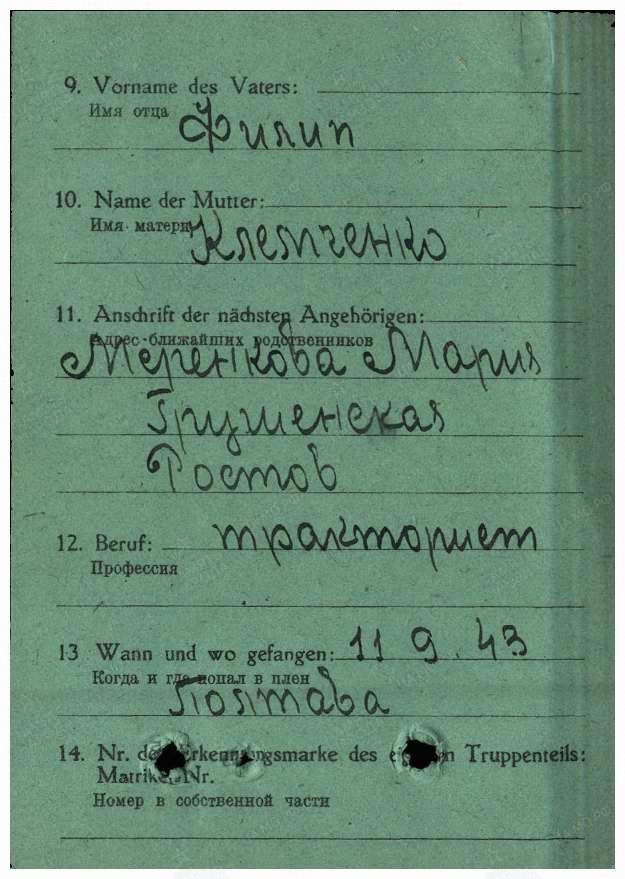 9. Vorname des Vaters:
Имя отца
Филип
10. Name der Mutter:
Имя матери
Клемченко
11. Anschrift der nächsten Angehörigen:
Адрес ближайших родственников
Меренкова Мария
Грушенская
Ростов
12. Beruf: тракторист
Профессия
13 Wann und wo gefangen: 11 9. 43
Когда и где попал в плен
Полтава
14. Nr. der Erkennungsmarke des eigenen Truppenteils:
Matrikel Nr.
Номер в собственной части